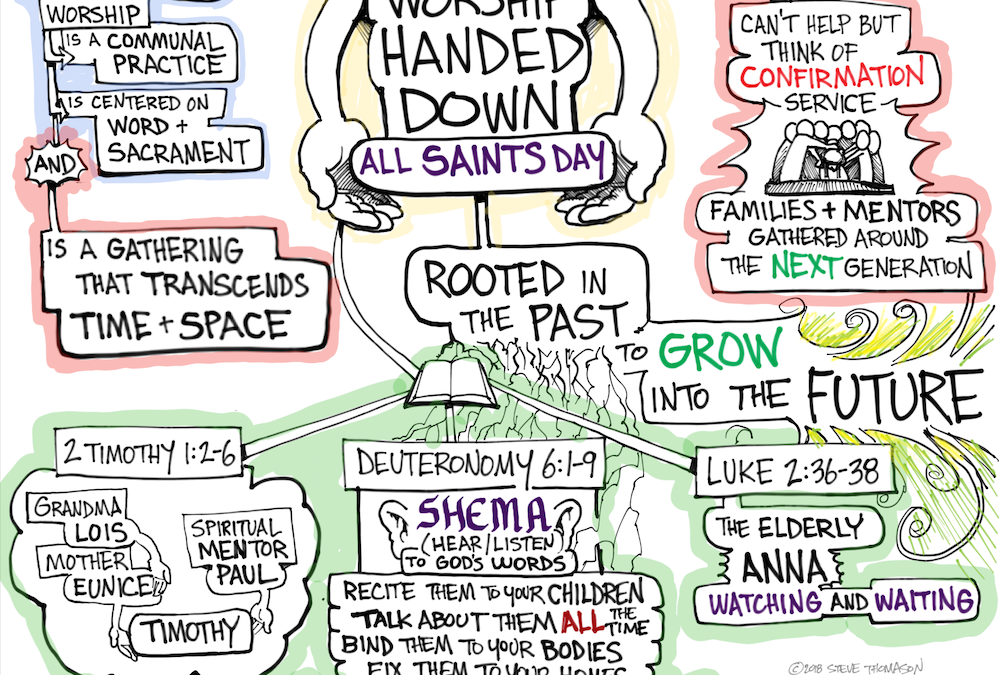 WORSHIP
IS A COMMUNAL
PRACTICE
IS CENTERED ON
WORD +
SACRAMENT
AND
IS A GATHERING
THAT TRANSCENDS
TIME + SPACE
WORSHIP
HANDED
DOWN
ALL SAINTS DAY
CAN'T HELP BUT
THINK OF
CONFIRMATION
SERVICE
FAMILIES + MENTORS
GATHERED AROUND
THE NEXT GENERATION
ROOTED IN
THE PAST
TO GROW
INTO THE FUTURE
2 TIMOTHY 1:2-6
GRANDMA
LOIS
MOTHER
EUNICE
SPIRITUAL
MENTOR
PAUL
TIMOTHY
DEUTERONOMY 6:1-9
SHEMA
(HEAR/LISTEN
TO GOD'S WORDS
RECITE THEM TO YOUR CHILDREN
TALK ABOUT THEM ALL THE TIME
BIND THEM TO YOUR BODIES
FIX THEM TO YOUR HOMES
LUKE 2:36-38
THE ELDERLY
ANNA
WATCHING AND WAITING
©2018 STEVE THOMASON